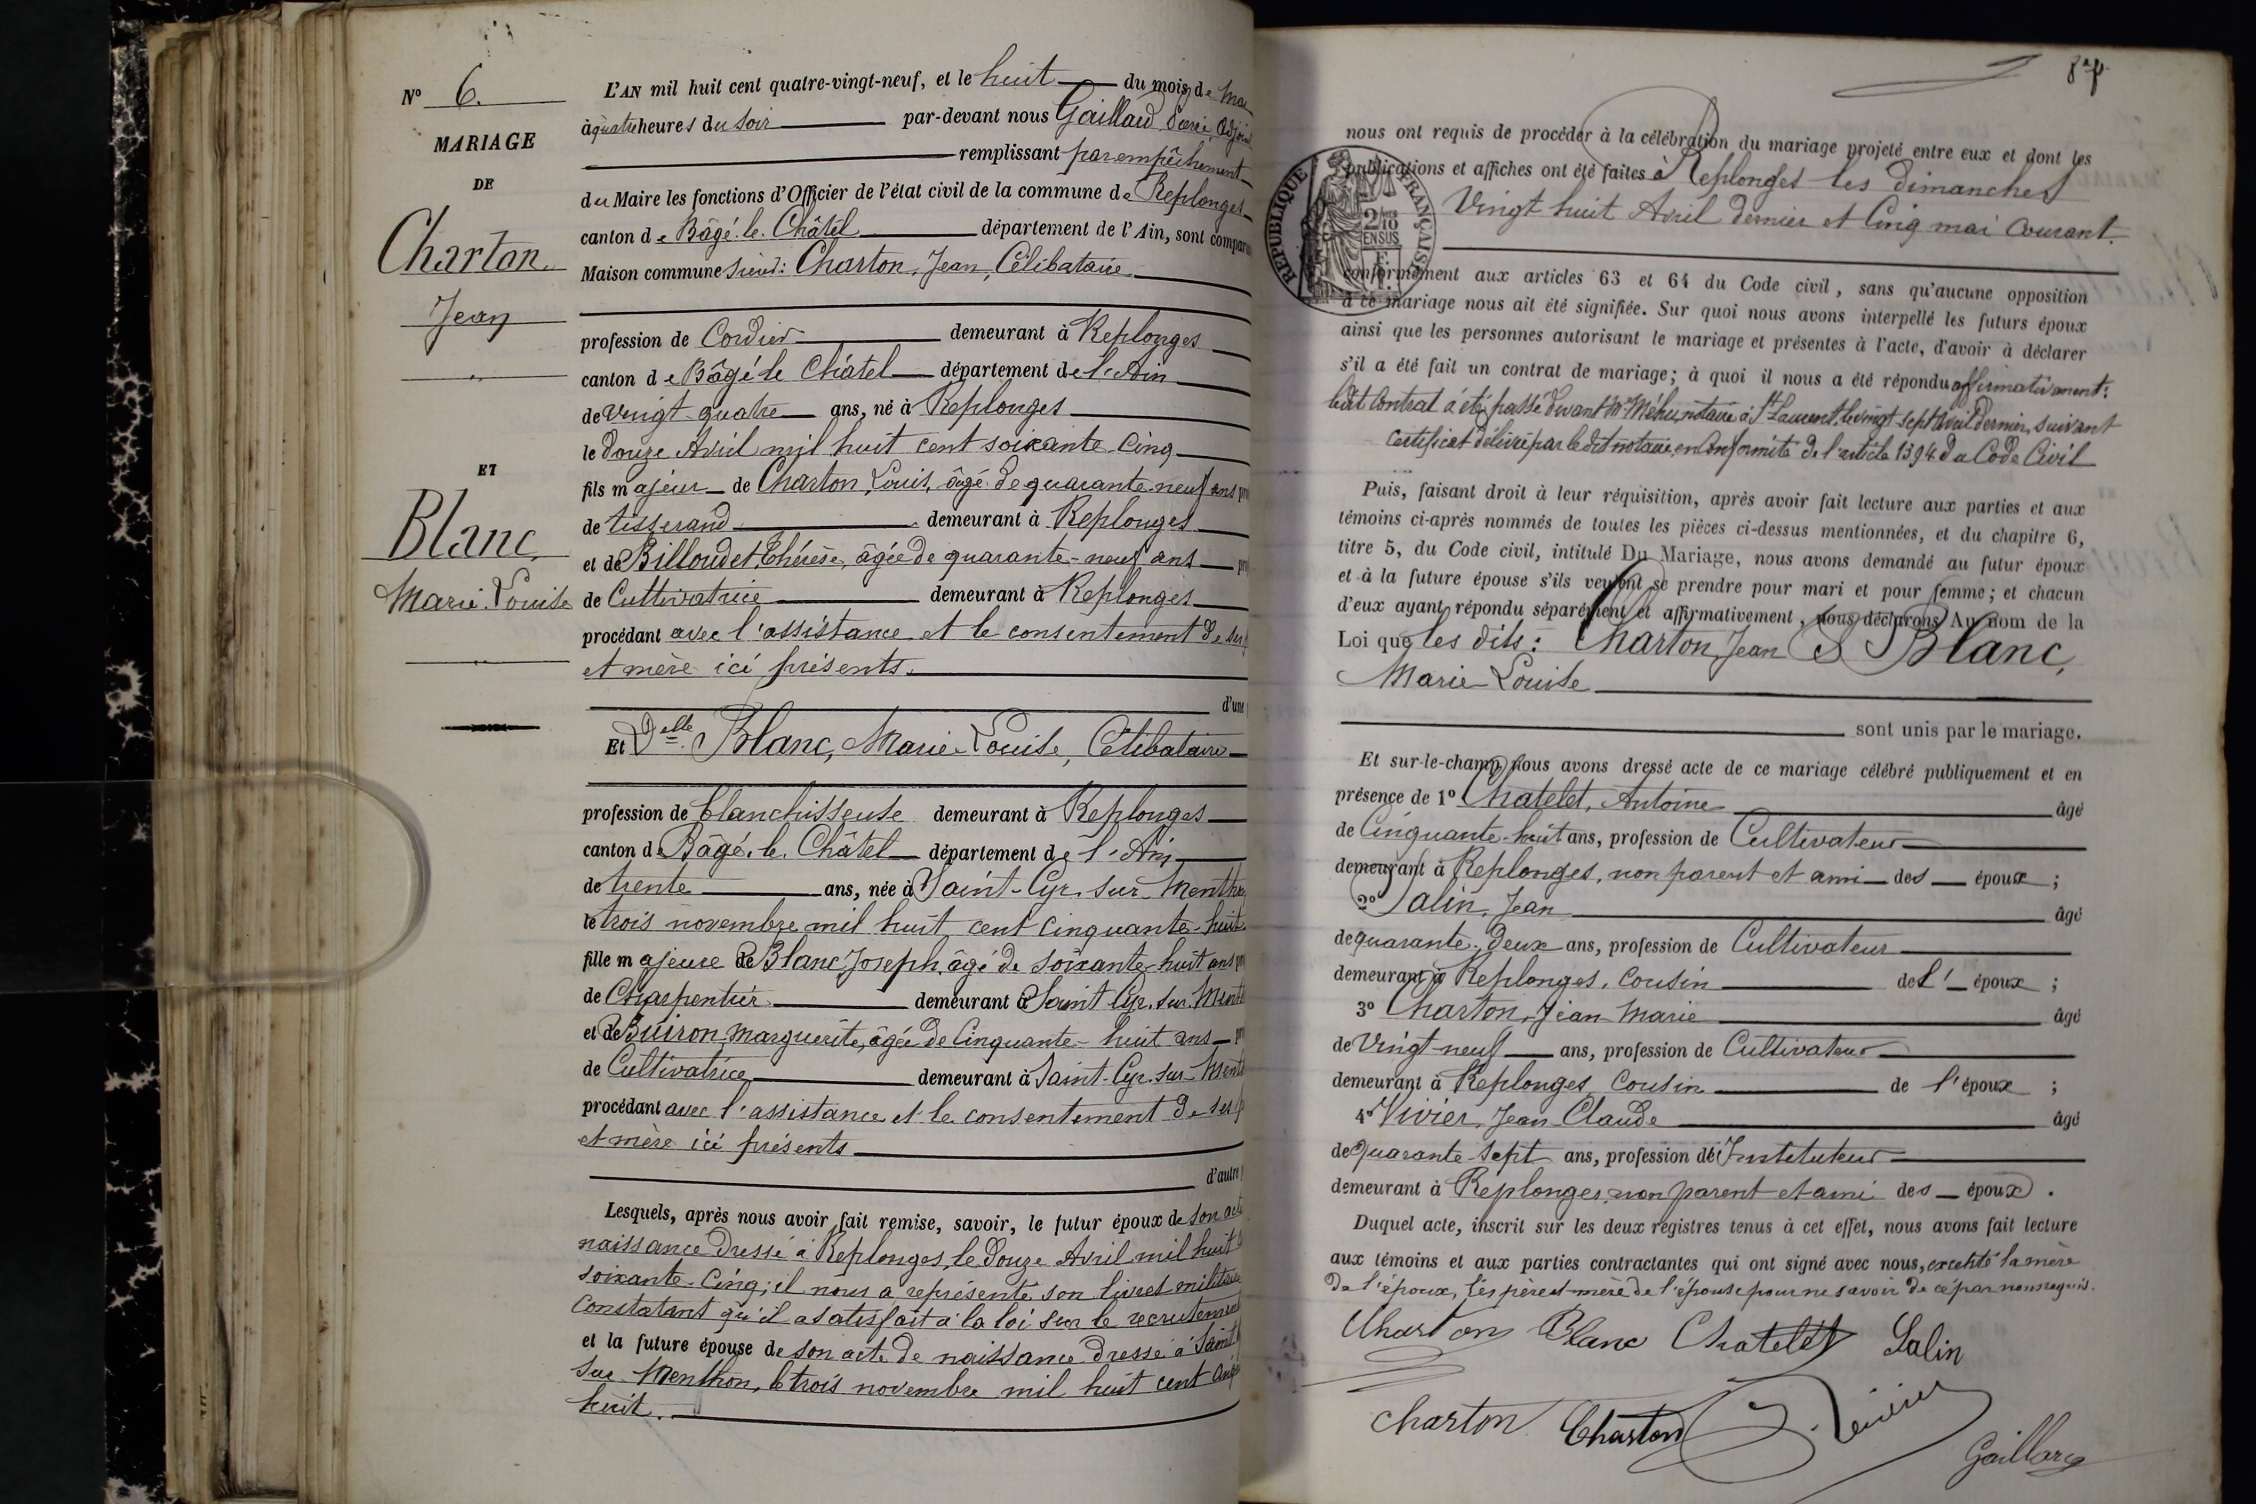 N° 6.
MARIAGE
DE
Charton,
Jean
ET
Blanc,
Marie-Louise
L'AN mil huit cent quatre-vingt-neuf, et le huit du mois de Mai
à quatre heures du soir par-devant nous Gaillard adjoint
remplissant par empêchement
du Maire les fonctions d'Officier de l'état civil de la commune de Replonges
canton de Bâgé-le-Châtel département de l'Ain, sont comparus
Maison commune sieur: Charton, Jean, Célibataire
profession de Cordier demeurant à Replonges
canton de Bâgé le Châtel département de l'Ain
de vingt quatre ans, né à Replonges
le douze Avril mil huit cent soixante-cinq
fils majeur de Charton, Louis, âgé de quarante-neuf ans
de tisserand demeurant à Replonges
et de Billoudet Thérèse, âgée de quarante-neuf ans
de Cultivatrice demeurant à Replonges
procédant avec l'assistance et le consentement de ses
et mère ici présents.
d'une
Et Delle Blanc, Marie-Louise, Célibataire
profession de blanchisseuse demeurant à Replonges
canton de Bâgé-le-Châtel département de l'Ain
de trente ans, née à Saint-Cyr-sur-Menthon
le trois novembre mil huit cent cinquante-huit
fille majeure de Blanc Joseph, âgé de soixante-huit ans
de Charpentier demeurant à Saint Cyr-sur-Menth
et de Buiron Marguerite, âgée de Cinquante-huit ans
de Cultivatrice demeurant à Saint-Cyr-sur-Menth
procédant avec l'assistance et le consentement de ses
et mère ici présents
d'autre
Lesquels, après nous avoir fait remise, savoir, le futur époux de son acte
naissance dressé à Replonges, le douze Avril mil huit
soixante-cinq; il nous a représenté son livret militaire
constatant qu'il a satisfait à la loi sur le recrutement
et la future épouse de son acte de naissance dressé à Saint
sur-Menthon, le trois novembre mil huit cent cinq
huit.
nous ont requis de procéder à la célébration du mariage projeté entre eux et dont les
publications et affiches ont été faites à Replonges les dimanches
Vingt huit Avril dernier et Cinq mai Courant.
RÉPUBLIQUE FRANÇAISE
2/10 EN SUS
conformément aux articles 63 et 64 du Code civil, sans qu'aucune opposition
à ce mariage nous ait été signifiée. Sur quoi nous avons interpellé les futurs époux
ainsi que les personnes autorisant le mariage et présentes à l'acte, d'avoir à déclarer
s'il a été fait un contrat de mariage; à quoi il nous a été répondu affirmativement:
ledit Contrat a été passé devant Me Méhu, notaire à St Laurent, le vingt sept avril dernier, suivant
certificat délivré par le dit notaire, en conformité de l'article 1394 du Code Civil
Puis, faisant droit à leur réquisition, après avoir fait lecture aux parties et aux
témoins ci-après nommés de toutes les pièces ci-dessus mentionnées, et du chapitre 6,
titre 5, du Code civil, intitulé Du Mariage, nous avons demandé au futur époux
et à la future épouse s'ils veulent se prendre pour mari et pour femme; et chacun
d'eux ayant répondu séparément et affirmativement, nous déclarons Au nom de la
Loi que les dits: Charton, Jean & Blanc,
Marie-Louise
sont unis par le mariage.
Et sur-le-champ nous avons dressé acte de ce mariage célébré publiquement et en
présence de 1° Chatelet, Antoine âgé
de Cinquante-huit ans, profession de Cultivateur
demeurant à Replonges, non parent et ami des époux;
2° Salin, Jean âgé
de quarante-deux ans, profession de Cultivateur
demeurant à Replonges, cousin de l'époux;
3° Charton, Jean Marie âgé
de vingt-neuf ans, profession de Cultivateur
demeurant à Replonges, cousin de l'époux;
4° Vivier, Jean Claude âgé
de quarante-sept ans, profession d'Instituteur
demeurant à Replonges, non parent et ami des époux.
Duquel acte, inscrit sur les deux registres tenus à cet effet, nous avons fait lecture
aux témoins et aux parties contractantes qui ont signé avec nous, excepté la mère
de l'époux, les père et mère de l'épouse pour ne savoir de ce par nous requis.
Charton Blanc Chatelet Salin
Charton Charton J. Vivier
Gaillard